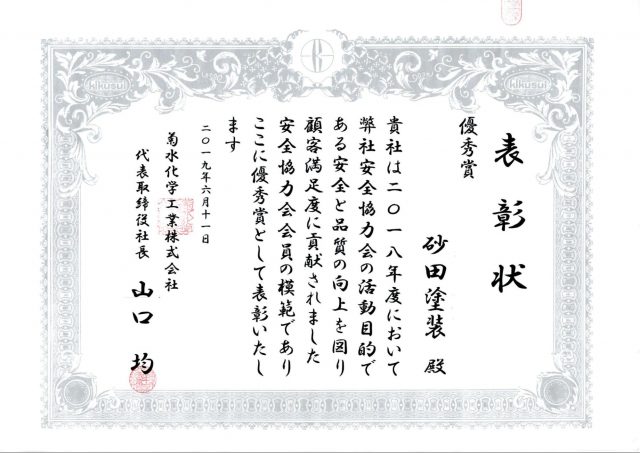 表彰状
優秀賞
砂田塗装 殿
貴社は二〇一八年度において
弊社安全協力会の活動目的で
ある安全と品質の向上を図り
顧客満足度に貢献されました
安全協力会会員の模範であり
ここに優秀賞として表彰いたし
ます
二〇一九年六月十一日
菊水化学工業株式会社
代表取締役社長 山口 均
kikusui
kikusui